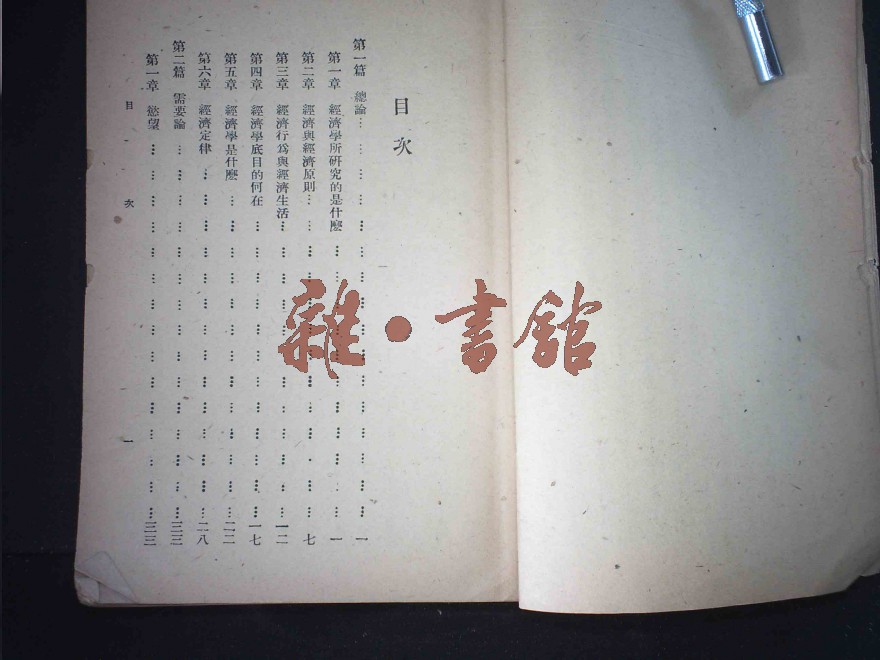 目次
第一篇 總論 一
第一章 經濟學所研究的是什麼 一
第二章 經濟與經濟原則 七
第三章 經濟行為與經濟生活 一二
第四章 經濟學底目的何在 一七
第五章 經濟學是什麼 二二
第六章 經濟定律 二八
第二篇 需要論 三三
第一章 慾望 三三
目次 一
雜·書館